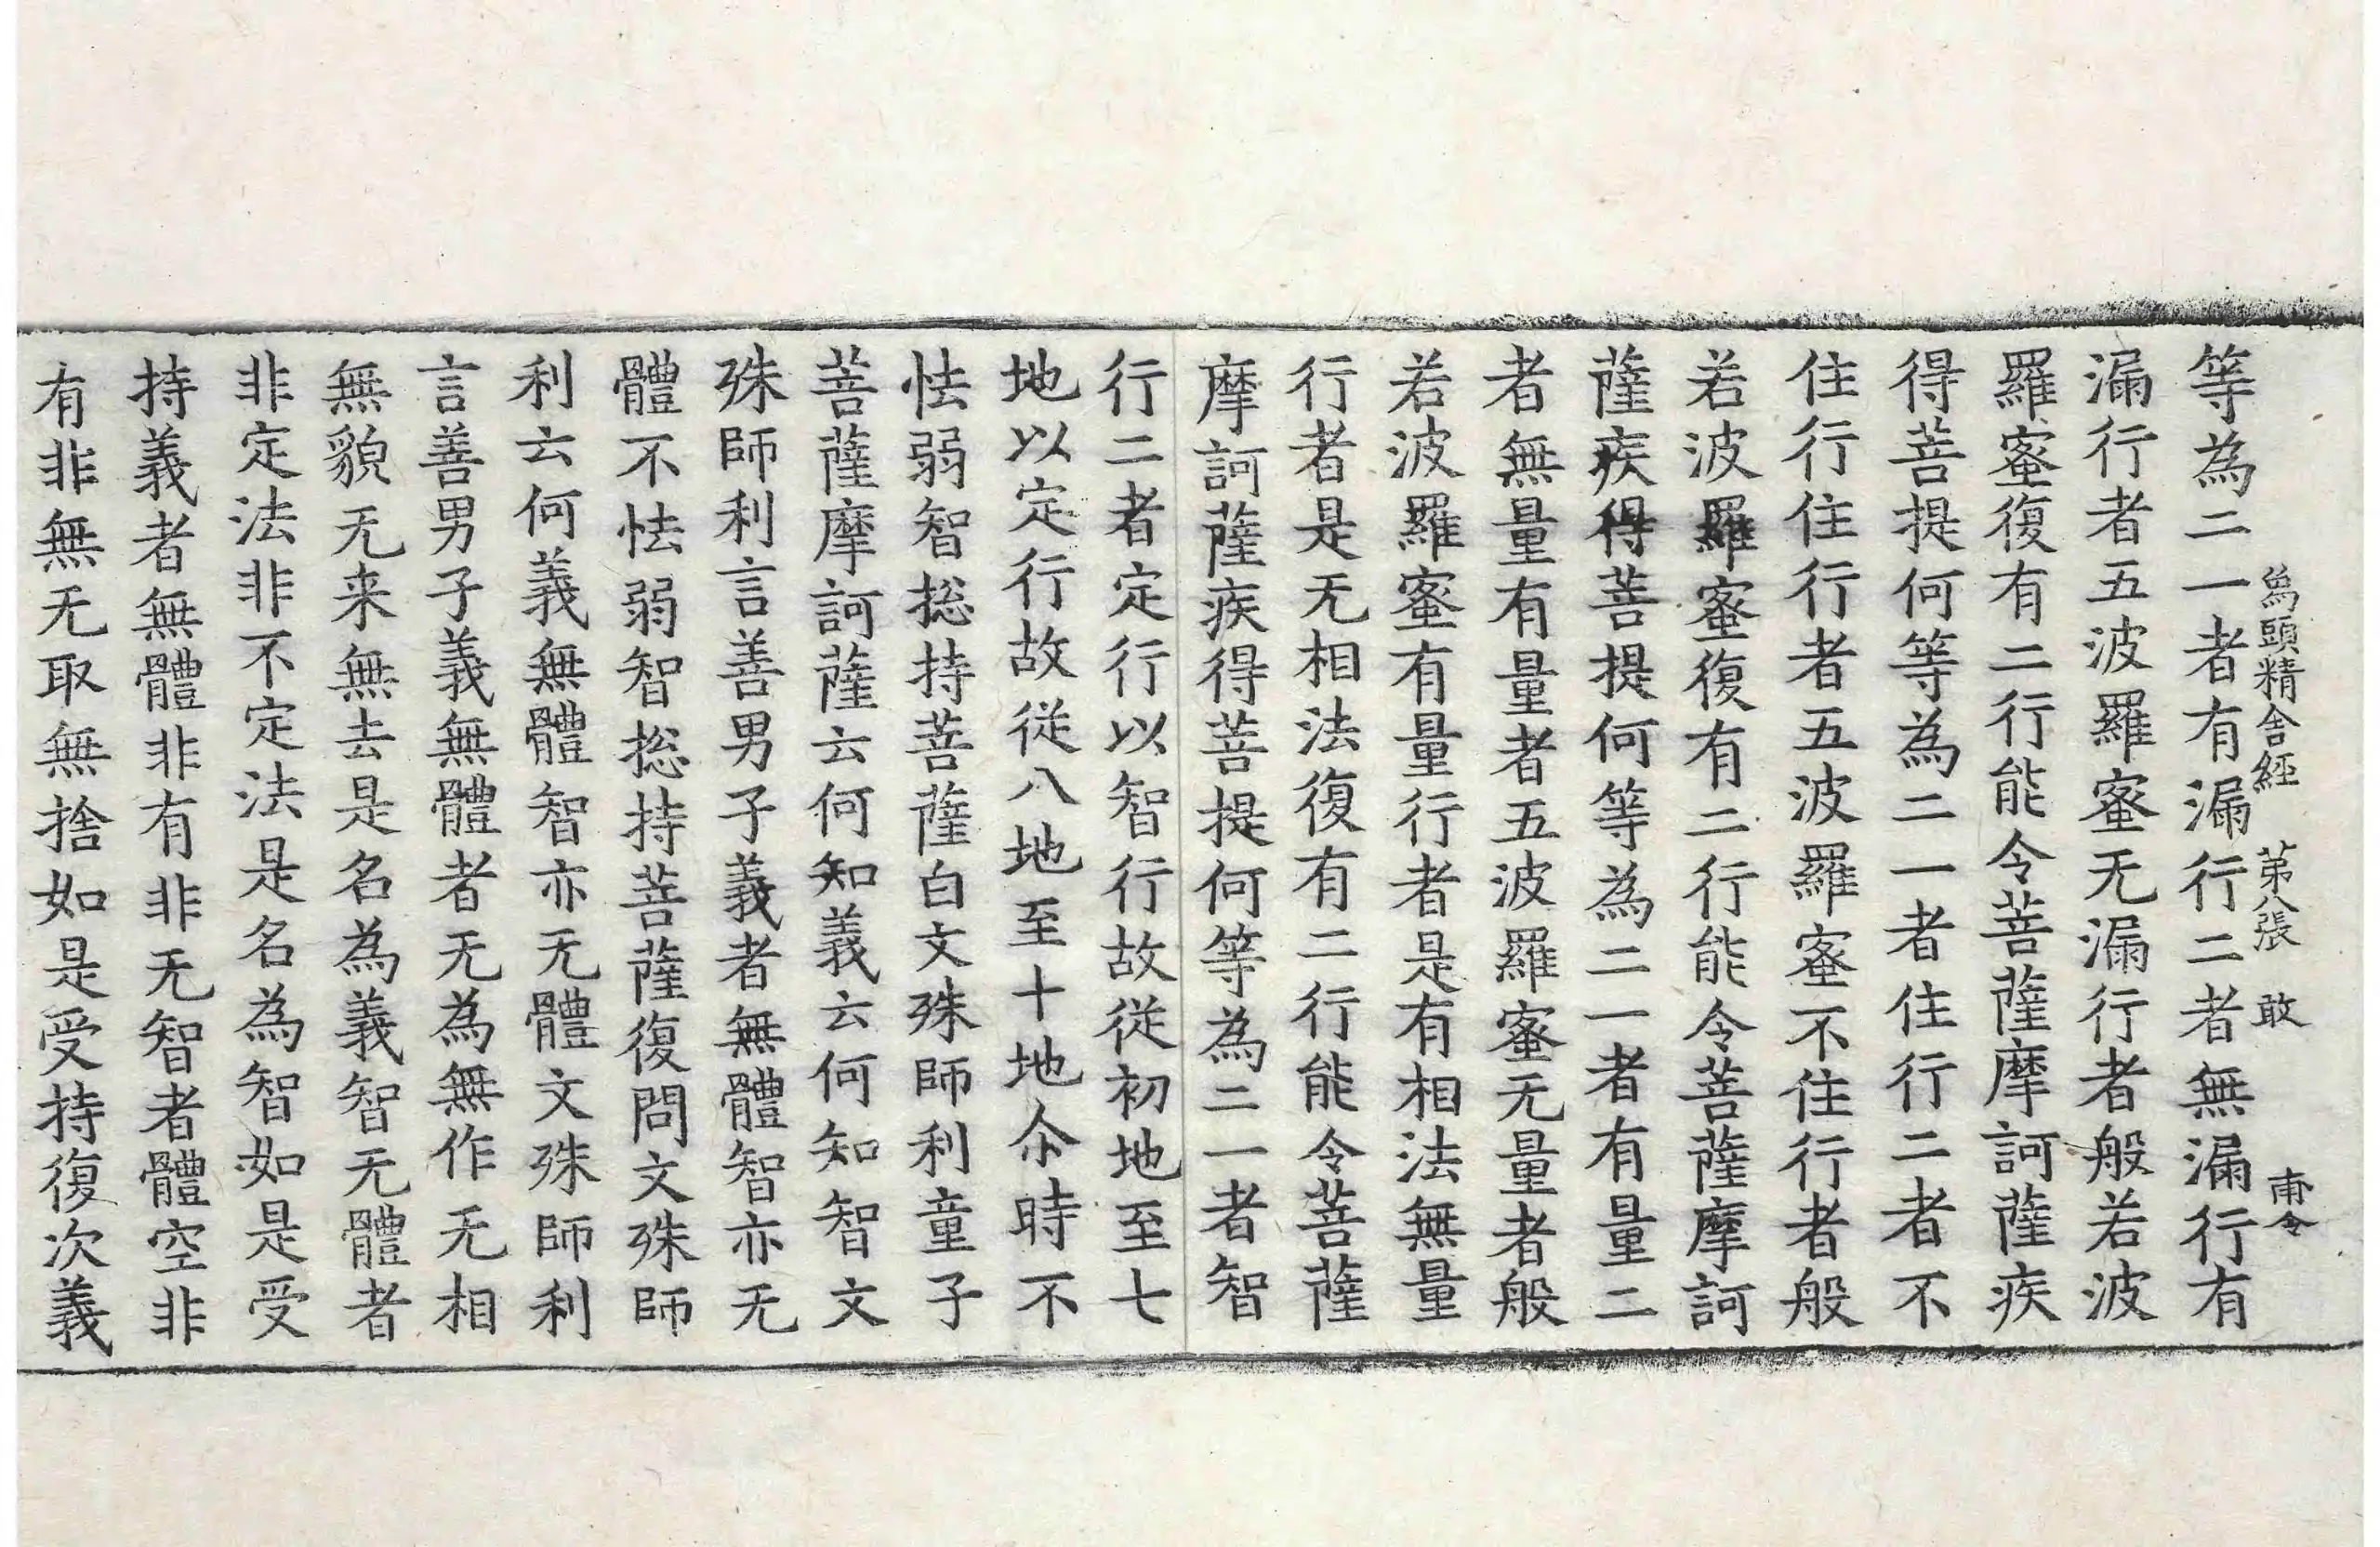 為頭精舍經 苐八張 敢
等為二一者有漏行二者無漏行有
漏行者五波羅蜜无漏行者般若波
羅蜜復有二行能令菩薩摩訶薩疾
得菩提何等為二一者住行二者不
住行住行者五波羅蜜不住行者般
若波羅蜜復有二行能令菩薩摩訶
薩疾得菩提何等為二一者有量二
者無量有量者五波羅蜜无量者般
若波羅蜜有量行者是有相法無量
行者是无相法復有二行能令菩薩
摩訶薩疾得菩提何等為二一者智
行二者定行以智行故從初地至七
地以定行故從八地至十地尒時不
怯弱智捴持菩薩白文殊師利童子
菩薩摩訶薩云何知義云何知智文
殊師利言善男子義者無體智亦无
體不怯弱智捴持菩薩復問文殊師
利云何義無體智亦无體文殊師利
言善男子義無體者无為無作无相
無貌无来無去是名為義智无體者
非定法非不定法是名為智如是受
持義者無體非有非无智者體空非
有非無无取無捨如是受持復次義